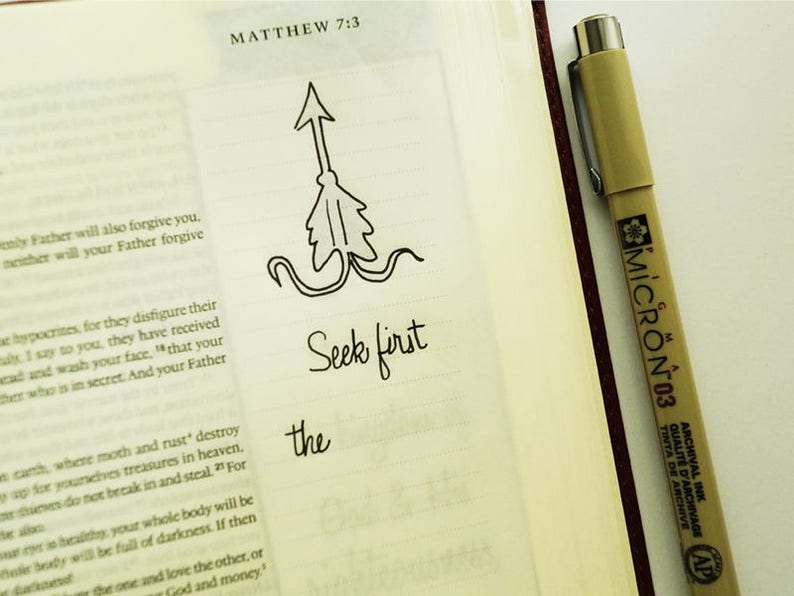 MATTHEW 7:3
enly Father will also forgive you,
neither will your Father forgive
hypocrites, for they disfigure their
I say to you, they have received
and wash your face, 18 that your
who is in secret. And your Father
earth, where moth and rust destroy
up for yourselves treasures in heaven,
thieves do not break in and steal. 21 For
be also.
eye is healthy, your whole body will be
body will be full of darkness. If then
darkness!
the one and love the other, or
God and money.
Seek first
the kingdom &
God & His
righteousness
PIGMA
MICRON 03
ARCHIVAL INK
QUALITÉ D'ARCHIVAGE
TINTA DE ARCHIVE
AP